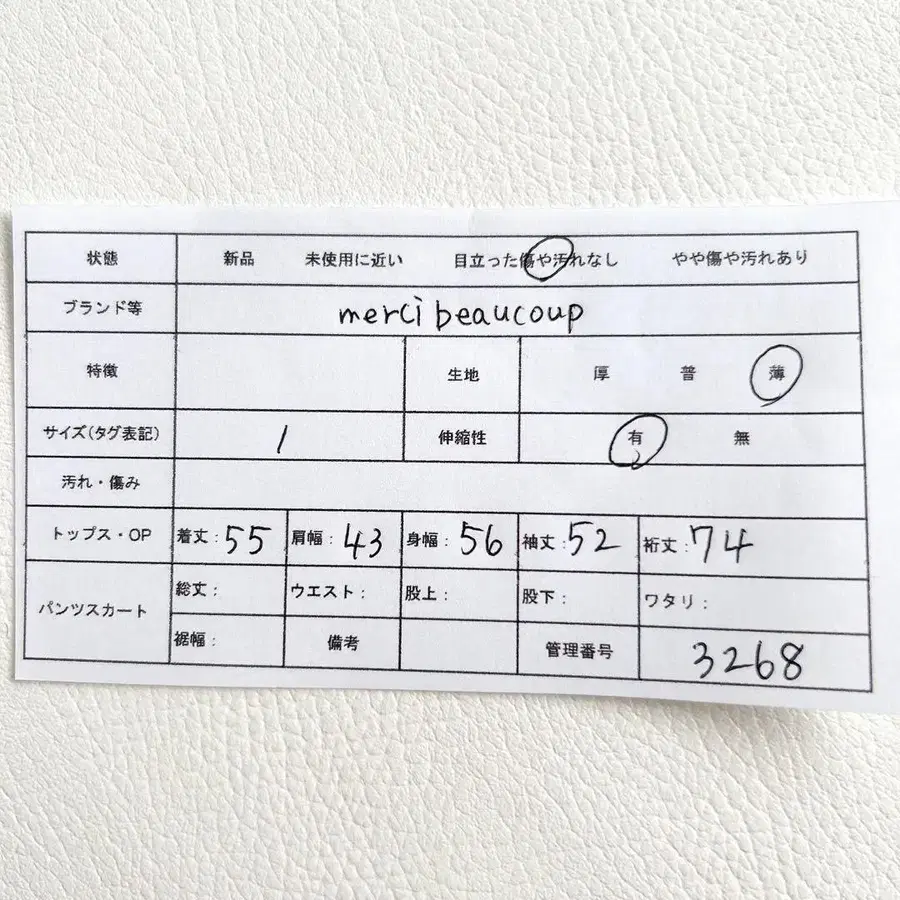 状態 新品 未使用に近い 目立った傷や汚れなし やや傷や汚れあり
ブランド等 merci beaucoup
特徴 生地 厚 普 薄
サイズ(タグ表記) 1 伸縮性 有 無
汚れ・傷み
トップス・OP 着丈:55 肩幅:43 身幅:56 袖丈:52 裄丈:74
パンツスカート 総丈: ウエスト: 股上: 股下: ワタリ:
裾幅: 備考 管理番号 3268